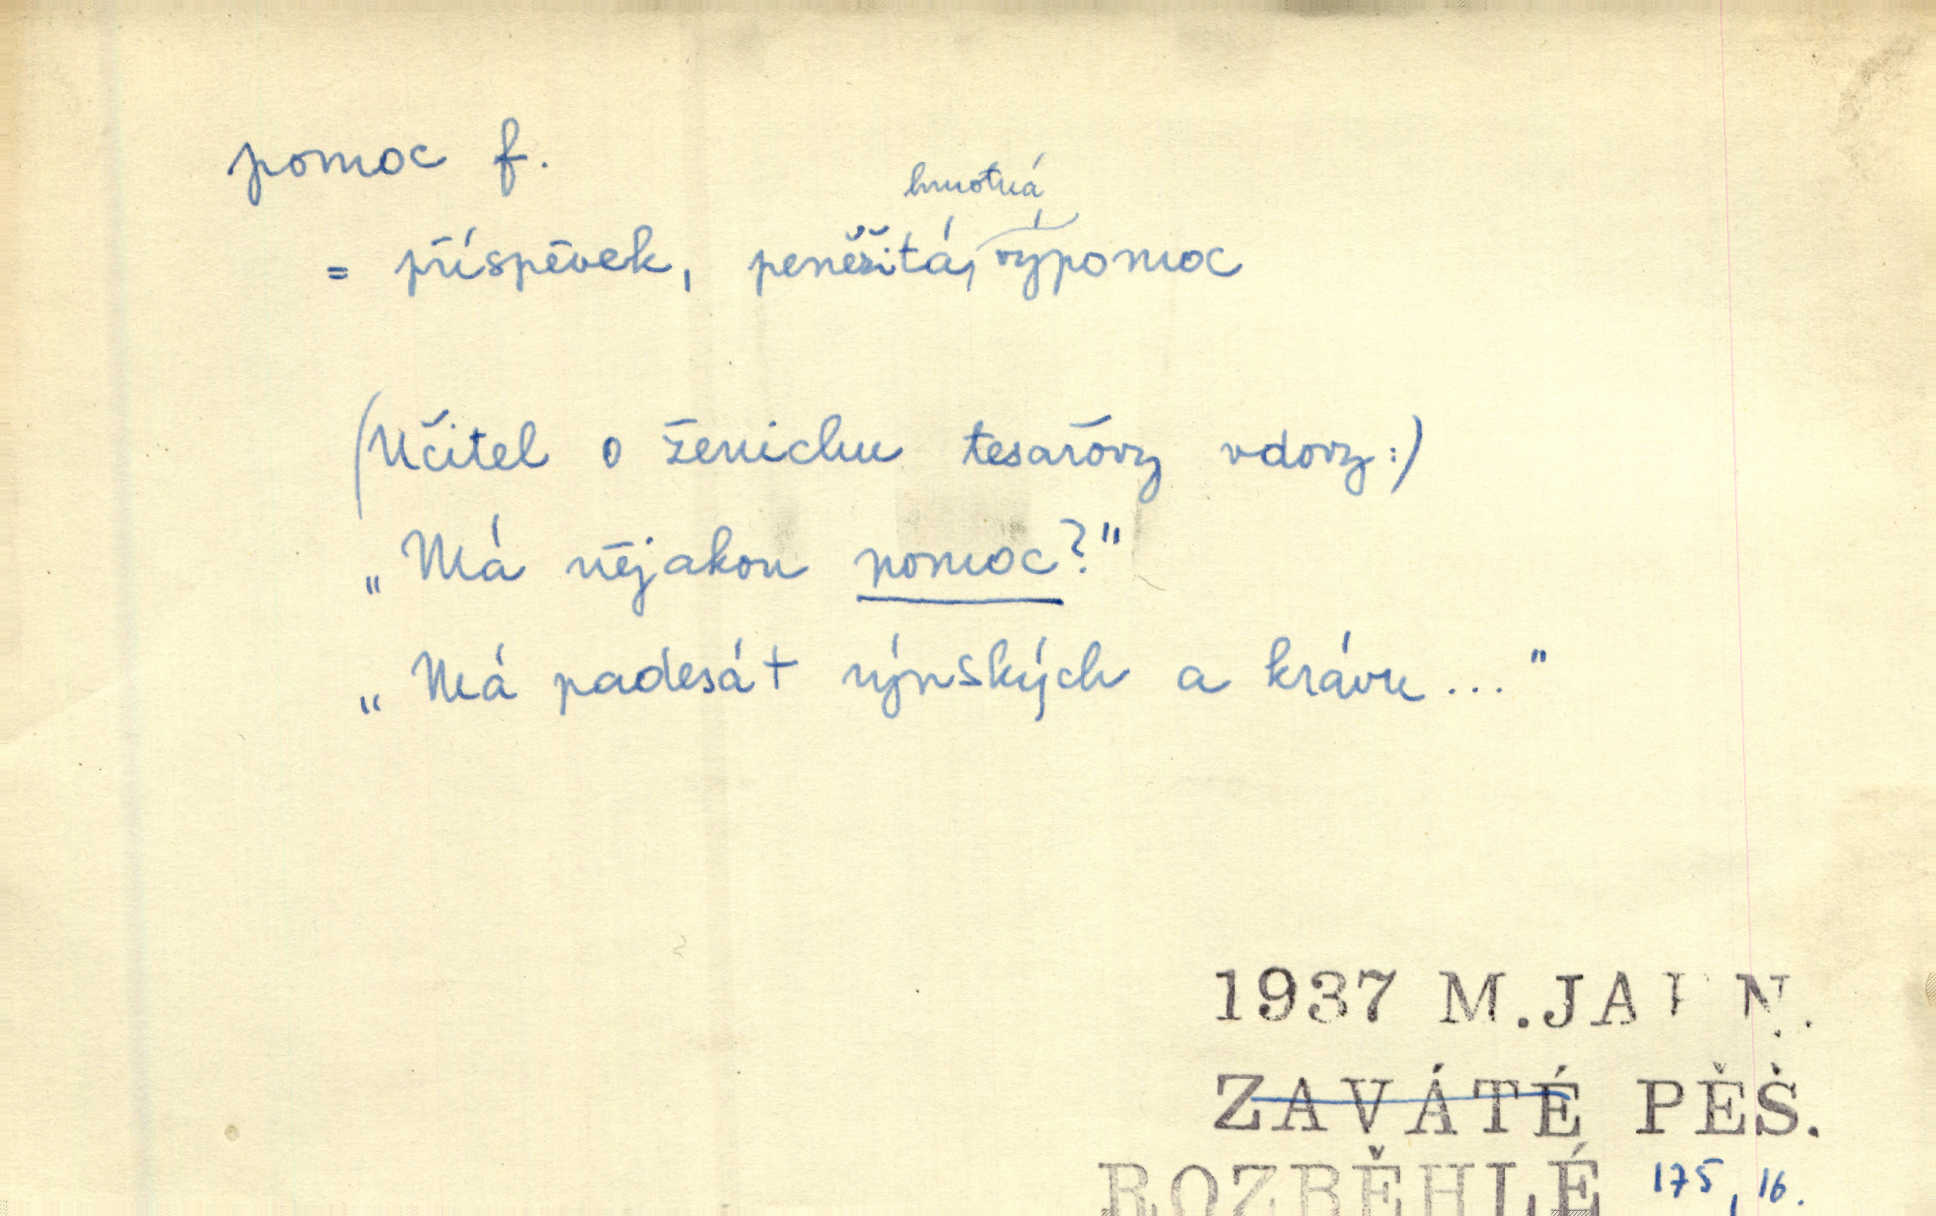 pomoc f.
hmotná
= příspěvek, peněžitá, výpomoc
(Učitel o ženichu tesařovy vdovy:)
„Má nějakou pomoc?"
„Má padesát rýnských a krávu..."
1937 M.JAHN.
ZAVÁTÉ PĚŠ.
ROZBĚHLÉ 175, 16.